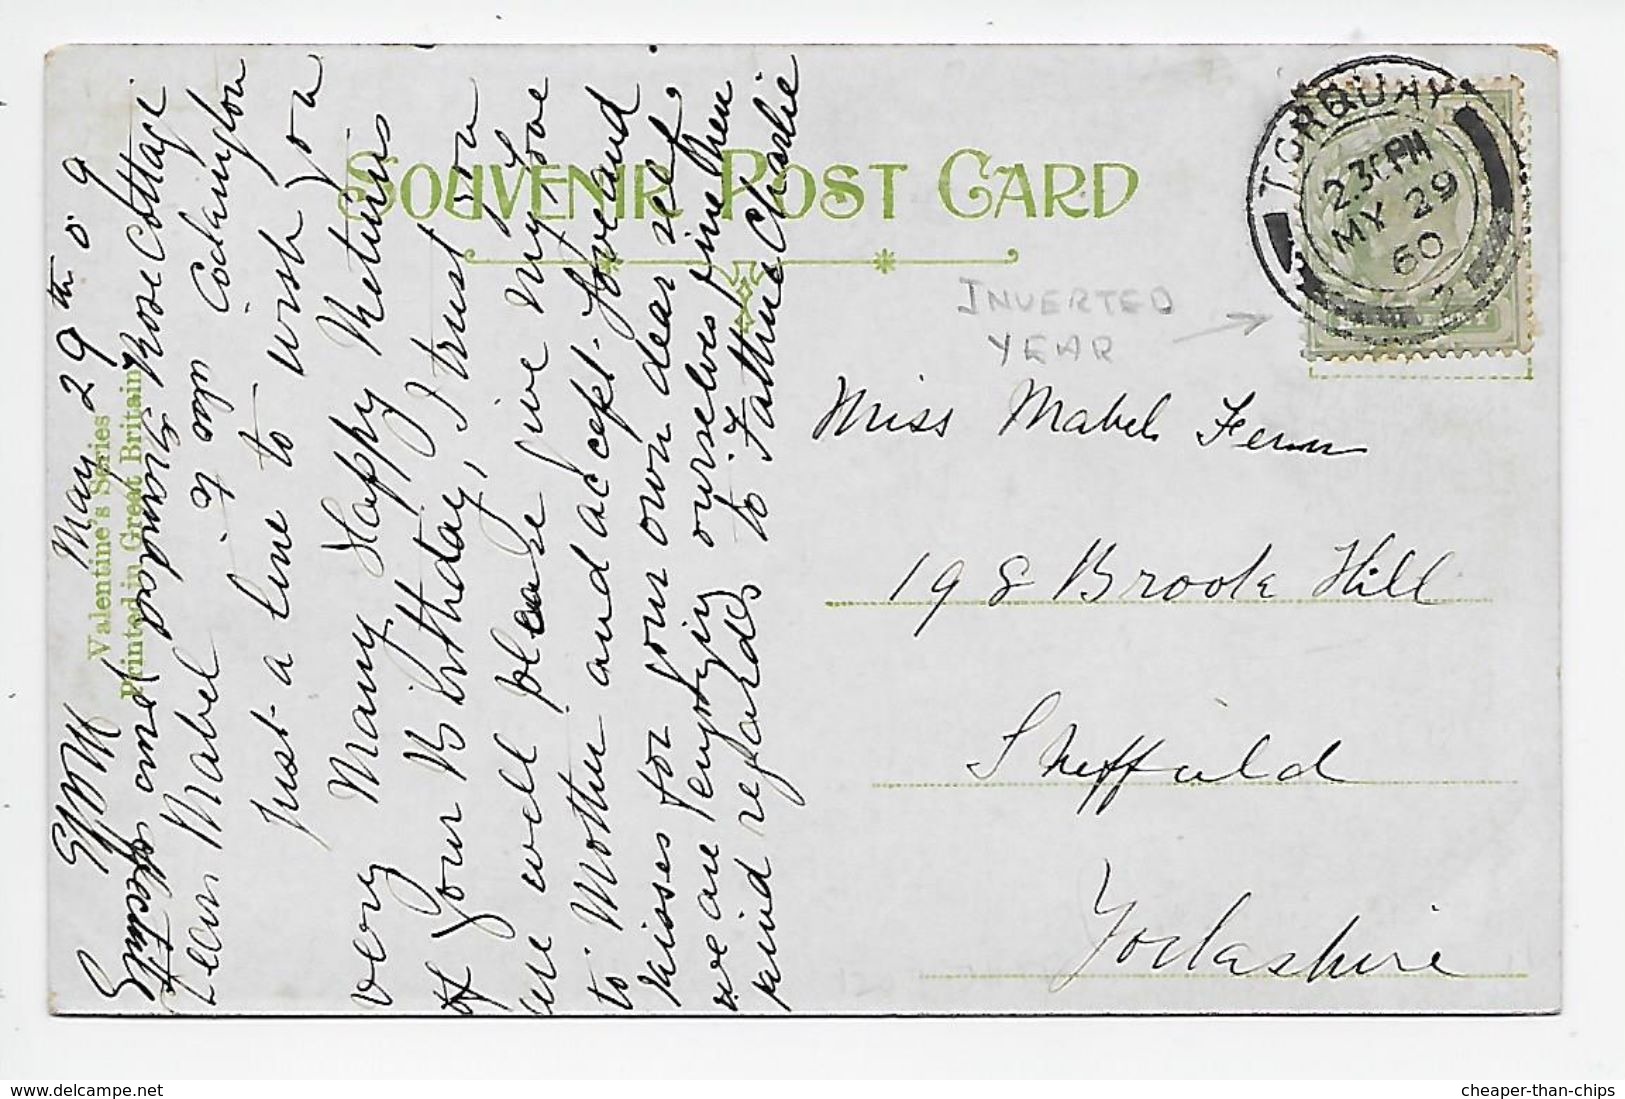 SOUVENIR POST CARD
TORQUAY
2.30 PM
MY 29
60
INVERTED
YEAR
Miss Mabel Fenn
198 Brook Hill
Sheffield
Yorkshire
Valentine's Series
Printed in Great Britain
May 29th 09
Rose Cottage
Cockington
Dear Mabel
just a line to wish you
very Many Happy Returns
of your Birthday, I trust you
are well please give my love
to Mother and accept love and
kisses for your own dear self,
we are enjoying ourselves fine then
kind regards to Father & Charlie